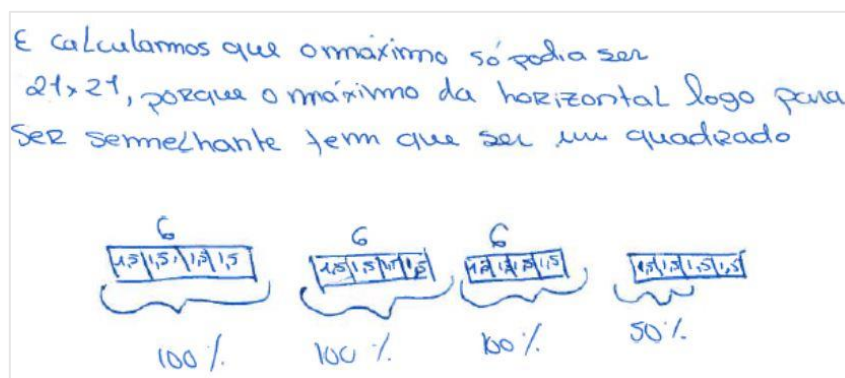 E calculamos que o máximo só podia ser
21x21, porque o máximo da horizontal logo para
ser semelhante tem que ser um quadrado
6 6 6
1,5 1,5 1,5 1,5 1,5 1,5 1,5 1,5 1,5 1,5 1,5 1,5 1,5 1,5 1,5 1,5
100% 100% 100% 50%